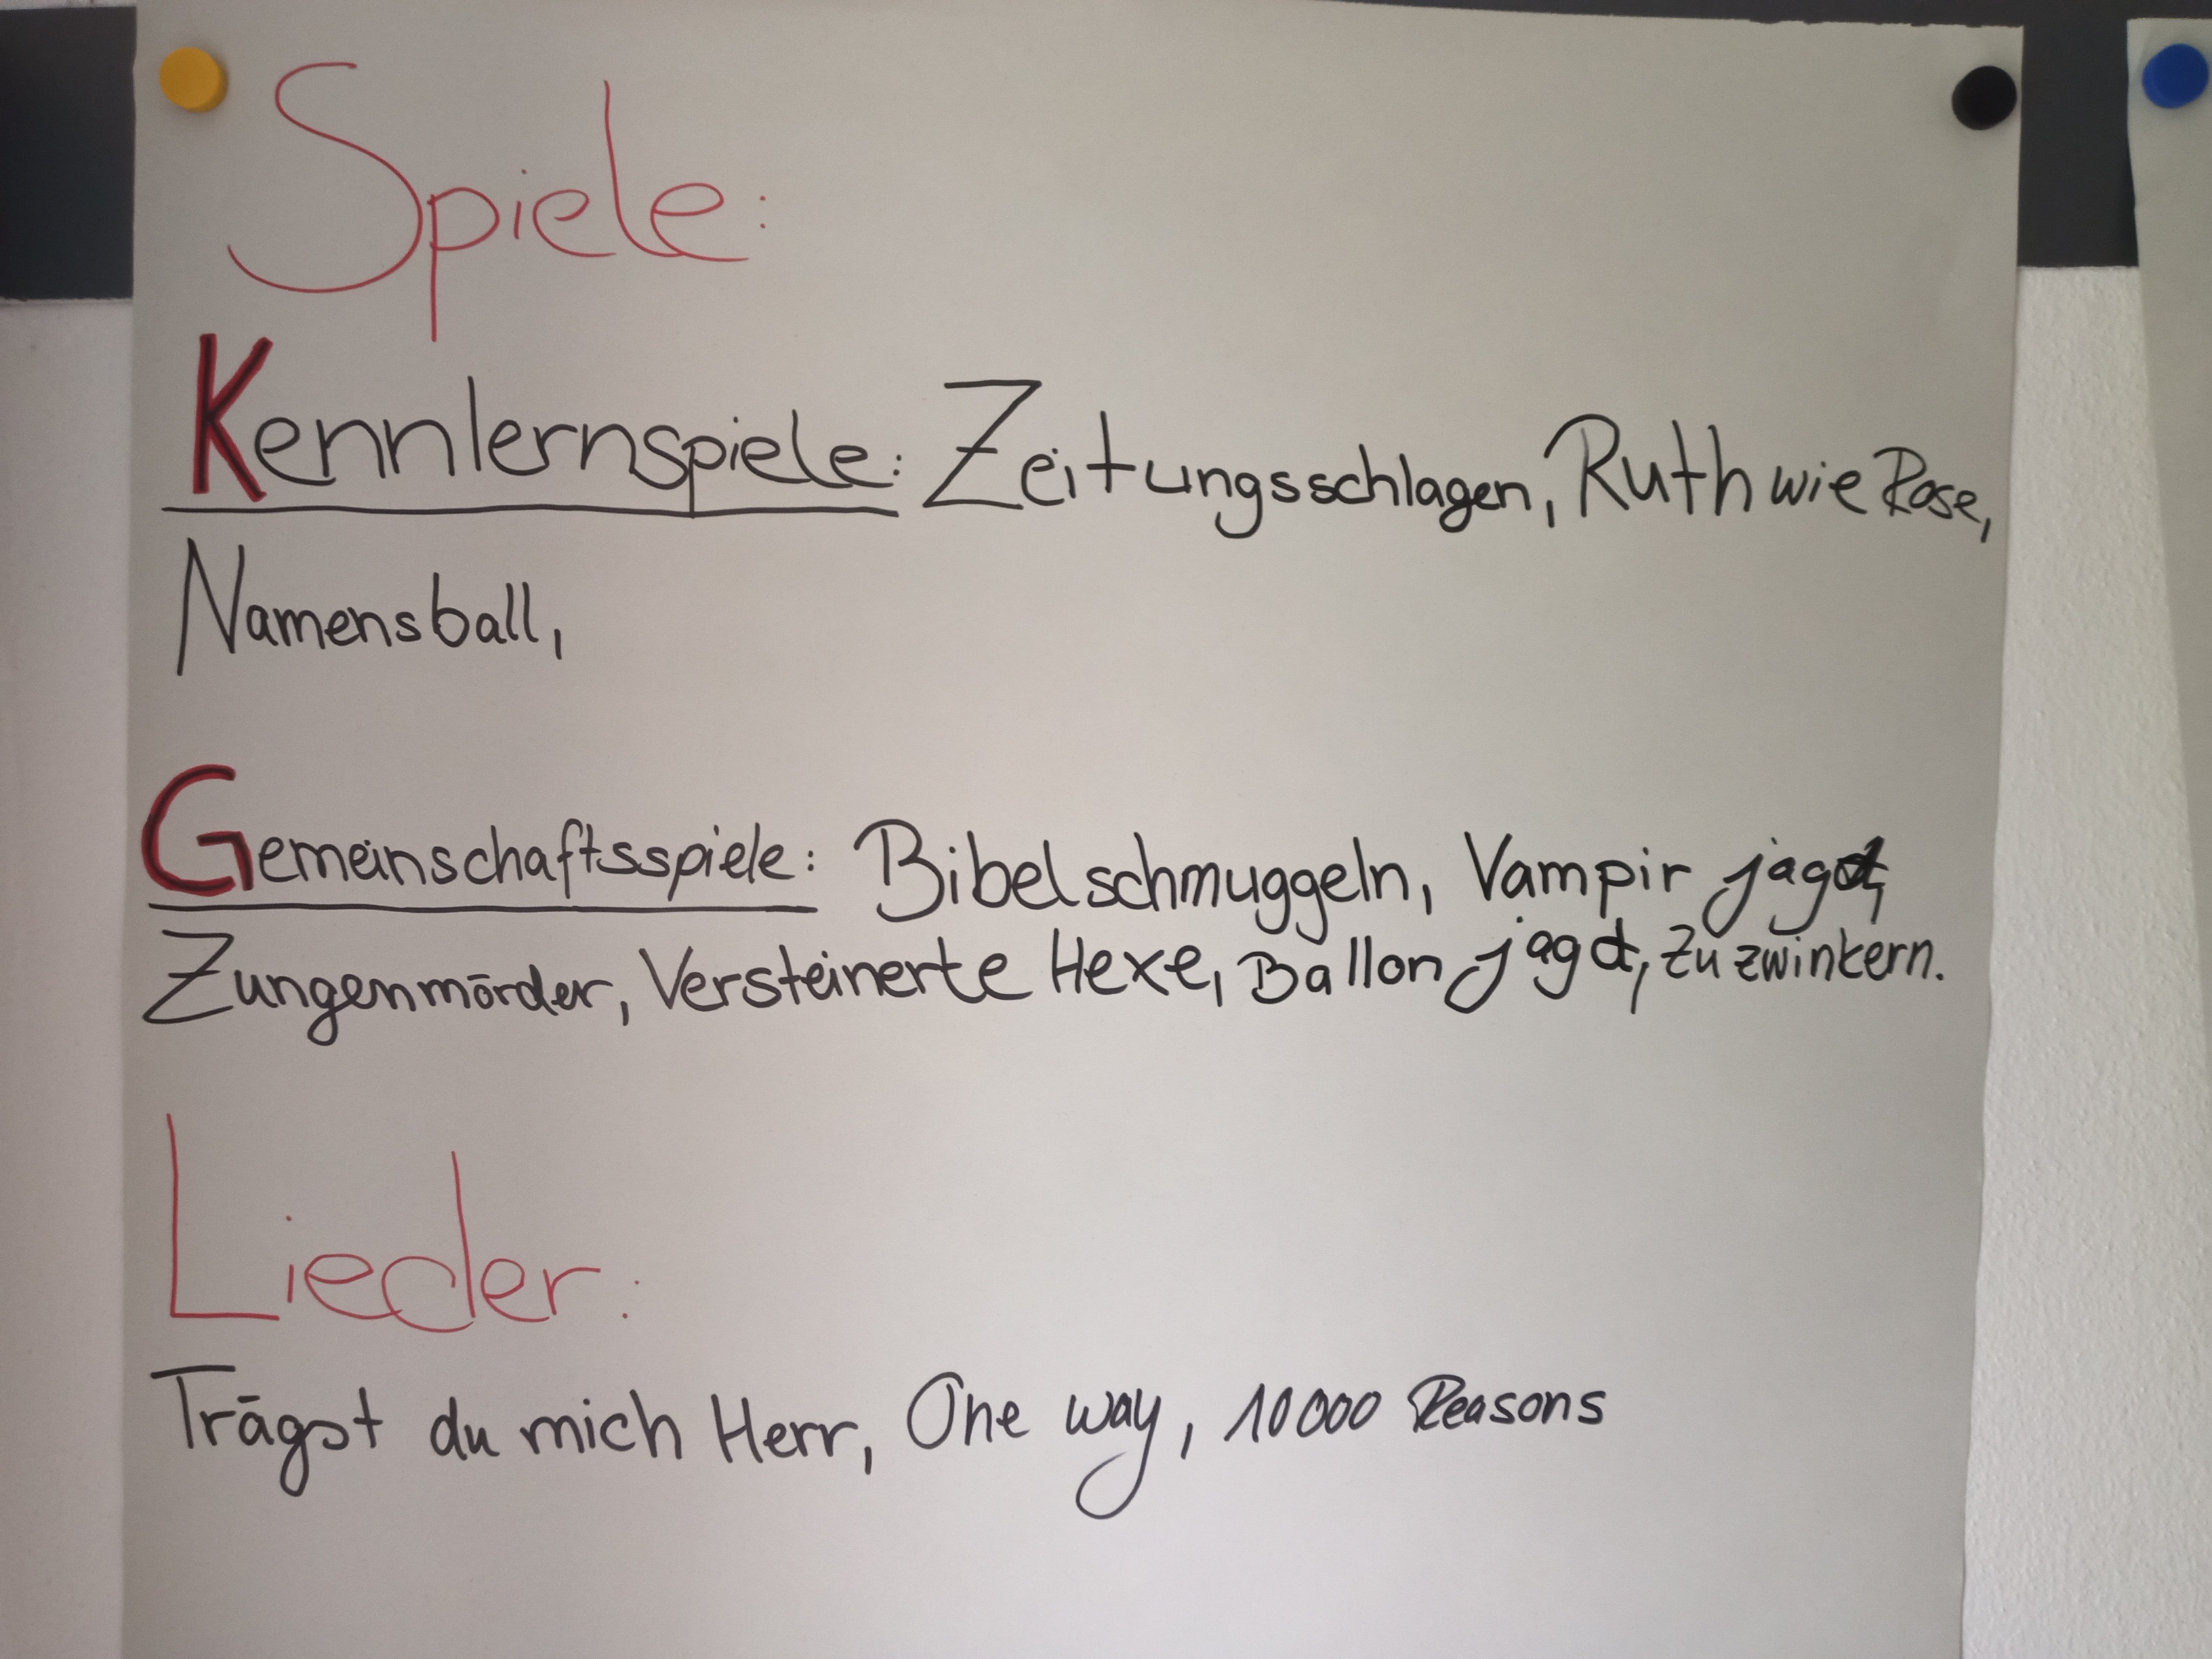 Spiele:
Kennlernspiele: Zeitungsschlagen, Ruth wie Rose,
Namensball,
Gemeinschaftsspiele: Bibelschmuggeln, Vampir jagd,
Zungenmörder, Versteinerte Hexe, Ballon jagd, Zu zwinkern.
Lieder:
Trägst du mich Herr, One way, 10000 Reasons